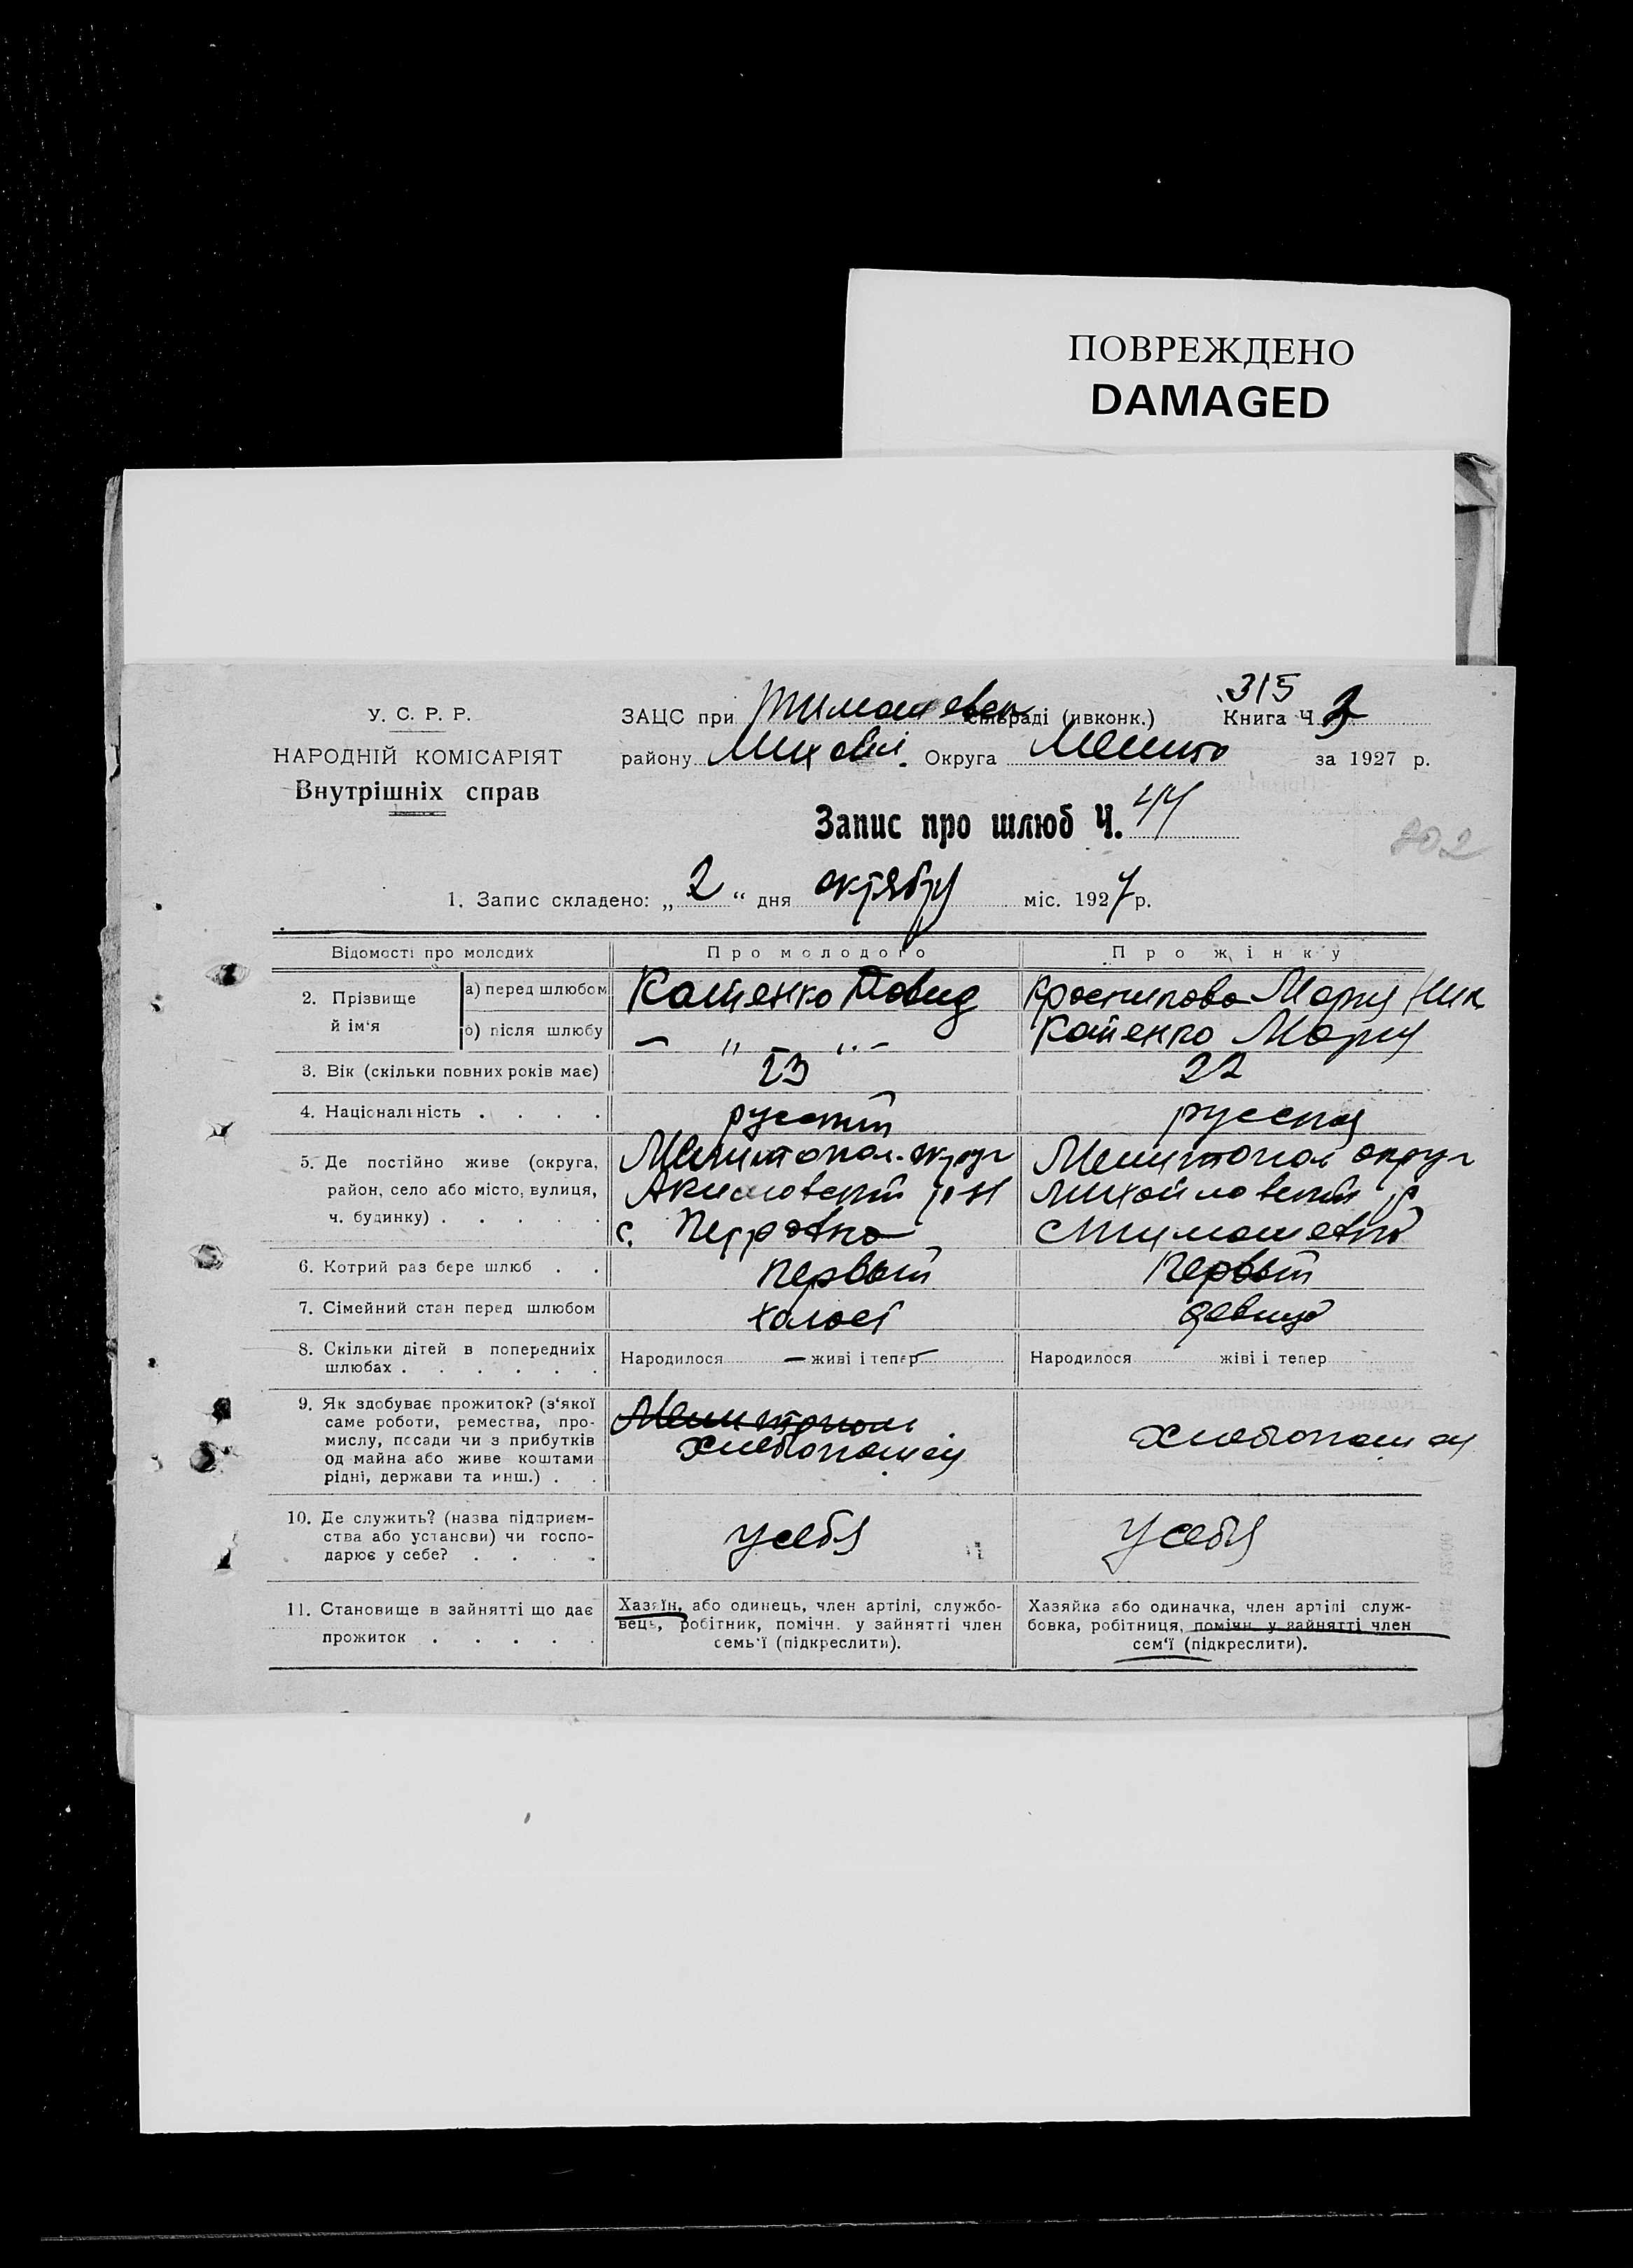 ПОВРЕЖДЕНО
DAMAGED
315
У. С. Р. Р.
ЗАЦС при Тимашевск сільраді (ивконк.) Книга Ч 3
НАРОДНІЙ КОМІСАРІЯТ
району Михавкі. Округа Мелито за 1927 р.
Внутрішніх справ
Запис про шлюб Ч. 44
802
1. Запис складено: „ 2 “ дня октября міс. 1927 р.
Відомості про молодих Про молодого Про жінку
2. Прізвище й ім‘я
а) перед шлюбом Катенко Давид Мария Ник
б) після шлюбу — „ — „ — Катенко Мария
3. Вік (скільки повних років має) 23 22
4. Національність . . . . русский русская
5. Де постійно живе (округа, Мелитопол. округ Мелитопол округ
район, село або місто, вулиця, Акимовский р-н Михайловский р
ч. будинку) . . . . . с. Петровка с Тимошевка
6. Котрий раз бере шлюб . . первый Первый
7. Сімейний стан перед шлюбом холост девица
8. Скільки дітей в попередниіх
шлюбах . . . . . . Народилося — живі і тепер — Народилося живі і тепер
9. Як здобуває прожиток? (з‘якої Мелитополь
саме роботи, ремества, про- хлебопашец хлебопашец
мислу, посади чи з прибутків
од майна або живе коштами
рідні, держави та инш.) . .
10. Де служить? (назва підприєм-
ства або установи) чи госпо- у себя у себя
дарює у себе? . . . .
11. Становище в зайнятті що дає
прожиток . . . . .
Хазяїн, або одинець, член артілі, службо-
вець, робітник, помічн. у зайнятті член
семь‘ї (підкреслити).
Хазяйка або одиначка, член артілі служ-
бовка, робітниця, помічн. у зайнятті член
сем‘ї (підкреслити).